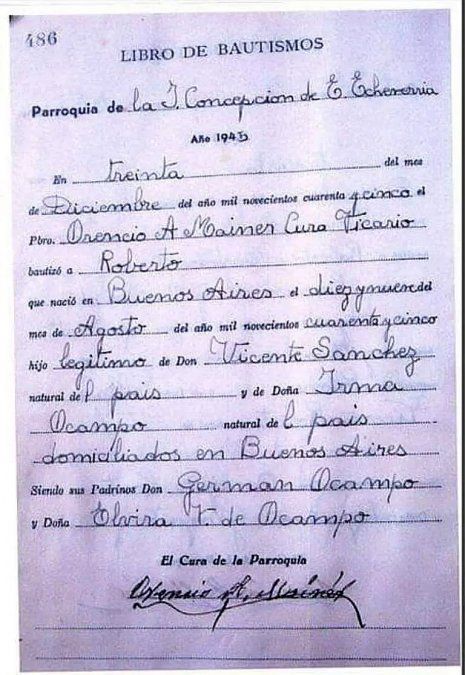 486
LIBRO DE BAUTISMOS
Parroquia de la I. Concepcion de E. Echeverria
Año 1945
En treinta del mes
de Diciembre del año mil novecientos cuarenta y cinco el
Pbro. Orencio A Mainer Cura Vicario
bautizó a Roberto
que nació en Buenos Aires el diez y nueve del
mes de Agosto del año mil novecientos cuarenta y cinco
hijo legitimo de Don Vicente Sanchez
natural del pais y de Doña Irma
Ocampo natural del pais
domiciliados en Buenos Aires
Siendo sus Padrinos Don German Ocampo
y Doña Elvira V. de Ocampo
El Cura de la Parroquia
Orencio A. Mainer